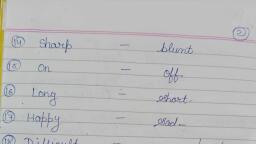 (2)
(14) Sharp - blunt
(15) On - off.
(16) Long - short.
(17) Happy - sad.
(18) Difficult